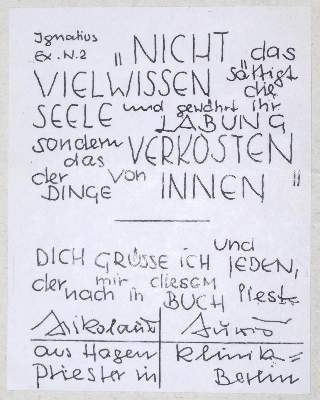 Ignatius
Ex. N.2 „NICHT das
VIELWISSEN sättigt die
SEELE und gewährt ihr LABUNG
sondern das VERKOSTEN
der DINGE von INNEN"
DICH GRÜSSE ICH und JEDEN,
der nach mir in diesem BUCH liest
Nikolaus
aus Hagen Klinik=
Priester in Berlin